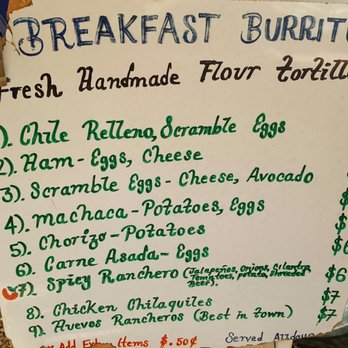 BREAKFAST BURRITO
Fresh Handmade Flour tortill
1). Chile Relleno, Scramble Eggs
2). Ham - Eggs, Cheese
3). Scramble Eggs - Cheese, Avocado
4). machaca - Potatoes, Eggs
5). Chorizo - Potatoes
6). Carne Asada - Eggs
7). Spicy Ranchero (Jalapeños, Onions, Cilantro, Tomatoes, potato, Shreded Beef). $6
8). Chicken Chilaquiles $7
9). Huevos Rancheros (Best in town) $7
Add Extra Items $.50¢ Served All day